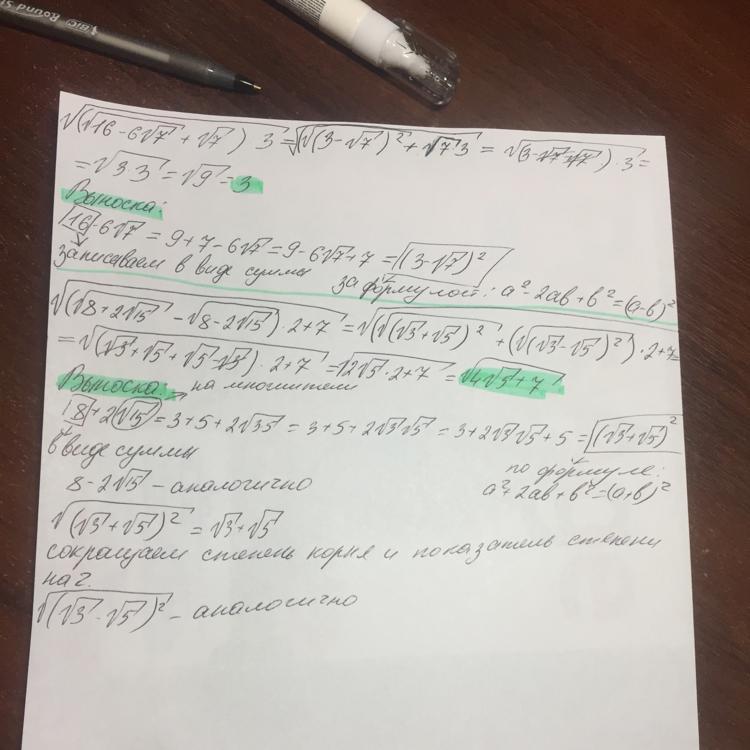 BIC Round St
√((√16 - 6√7 + √7) 3 = √(√(3-√7)² + √7·3 = √(3-√7+√7)·3 =
= √3·3 = √9 = 3
Выноска:
16 - 6√7 = 9 + 7 - 6√7 = 9 - 6√7 + 7 = (3-√7)²
записываем в виде суммы
за формулой: a² - 2ab + b² = (a-b)²
√((√8+2√15 - √8-2√15)·2+7 = √(√(√3+√5)² + (√(√3-√5)²)·2+7 =
= √(√3+√5+√5-√3)·2+7 = √2√5·2+7 = √4√5+7
Выноска: на множители
8 + 2√15 = 3+5+2√35 = 3+5+2√3√5 = 3+2√3√5+5 = (√3+√5)²
в виде суммы
по формуле:
8 - 2√15 - аналогично
a²+2ab+b²=(a+b)²
√(√3+√5)² = √3+√5
сокращаем степень корня и показатель степени
на 2.
√(√3-√5)² - аналогично